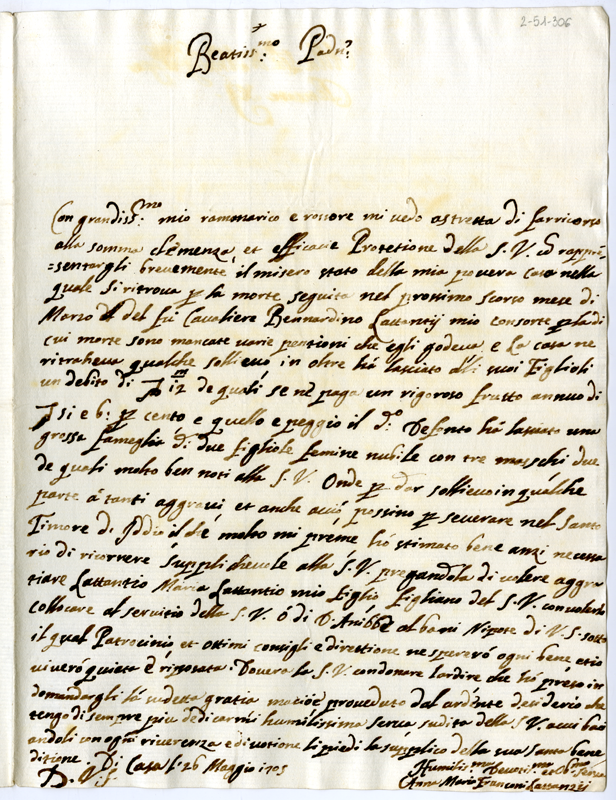 2-51-306
Beatiss:mo Padre
Con grandiss:mo mio ramarico e rossore mi vedo astretta di far ricorso
alla somma clemenza, et efficacie Protetione della S. V. rappre
=sentargli brevemente il misero stato della mia povera casa nella
quale si ritrova per la morte seguita nel prossimo scorso mese di
Marzo del fu Cavaliere Bernardino Lattantij mio consorte per la di
cui morte sono mancate varie pentioni che egli godeva, e la casa ne
ritraheva qualche sollievo in oltre ha lasciato alli suoi figlioli
un debito di 12 de quali se ne paga un rigoroso frutto annuo di
si e 6: per cento e quello e peggio il d:o Defonto ha lasciato una
grossa fameglia di due figliole femine nubile con tre maschi due
de quali molto ben noti alla S. V. Onde per dar sollievo in qualche
parte à tanti aggravi et anche acciò possino perseverare nel Santo
Timore di Iddio il che molto mi preme ho stimato bene anzi necessa
rio di ricorrere supplichevole alla S. V. pregandola di volere aggra
tiare Lattantio Maria Lattantio mio figlio figliano del S. V. con volerlo
collocare al servitio della S. V. ò di D. Anibbe Albani Nipote di V. S. sotto
il qual Patrocinio et ottimi consigli e direttione ne spererò ogni bene et io
viverò quieta e riposata. Doverà la S. V. condonare l'ardire che hò preso in
domandargli la sudetta gratia mentre proveduto dal ardente desiderio che
tengo di sempre più dedicarmi humilissima serva sudita della S. V. a cui baci
andoli con ogni riverenza e divotione li piedi la supplico della sua santa bene
ditione. Di Casa li 26 Maggio 1705
D. V. S.
Humilis:ma Devotis:ma et Ob:ma Serva
Anna Maria Franconi Lattanzi